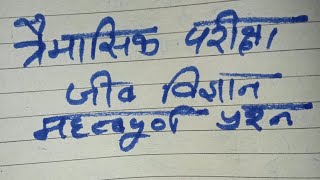 त्रैमासिक परीक्षा
जीव विज्ञान
महत्वपूर्ण प्रश्न